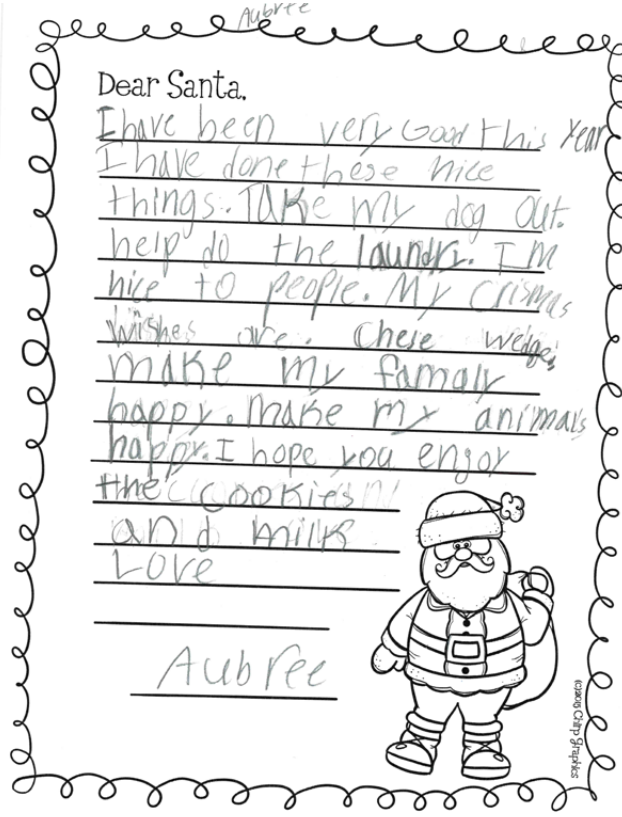 Aubree
Dear Santa,
I have been very Good this Year
I have done these nice
things. Take my dog out.
help do the laundry. I M
nice to people. My Crismas
wishes are. chese wedge,
make my famaly
happy. make my animals
happy. I hope you enjoy
the cookies
and milk
Love
Aubree
(c)2015 Chirp Graphics